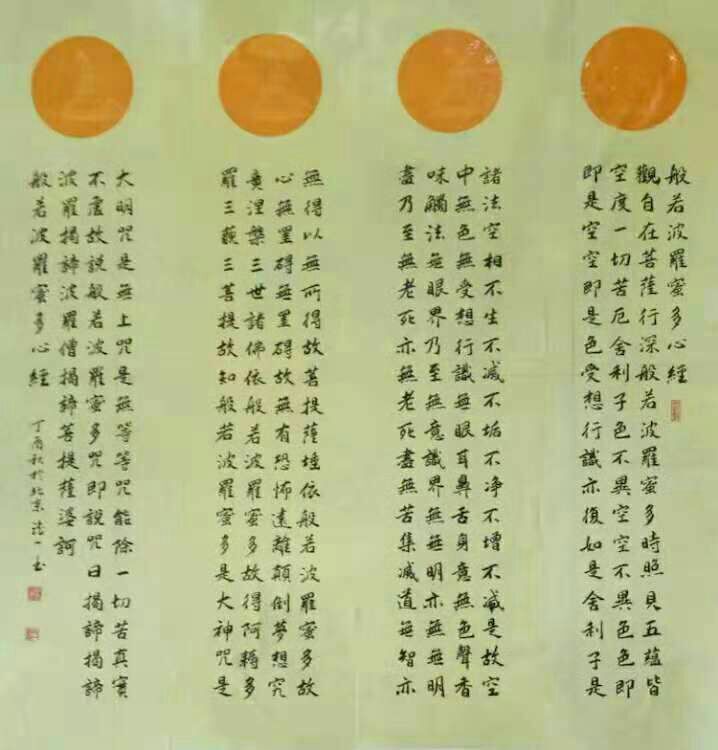 般若波羅蜜多心經
觀自在菩薩行深般若波羅蜜多時照見五蘊皆
空度一切苦厄舍利子色不異空空不異色色即
即是空空即是色受想行識亦復如是舍利子是
諸法空相不生不滅不垢不净不增不減是故空
中無色無受想行識無眼耳鼻舌身意無色聲香
味觸法無眼界乃至無意識界無無明亦無無明
盡乃至無老死亦無老死盡無苦集滅道無智亦
無得以無所得故菩提薩埵依般若波羅蜜多故
心無罣碍無罣碍故無有恐怖遠離顛倒夢想究
竟涅槃三世諸佛依般若波羅蜜多故得阿耨多
羅三藐三菩提故知般若波羅蜜多是大神咒是
大明咒是無上咒是無等等咒能除一切苦真實
不虛故說般若波羅蜜多咒即說咒曰揭諦揭諦
波羅揭諦波羅僧揭諦菩提薩婆訶
般若波羅蜜多心經
丁酉秋於北京